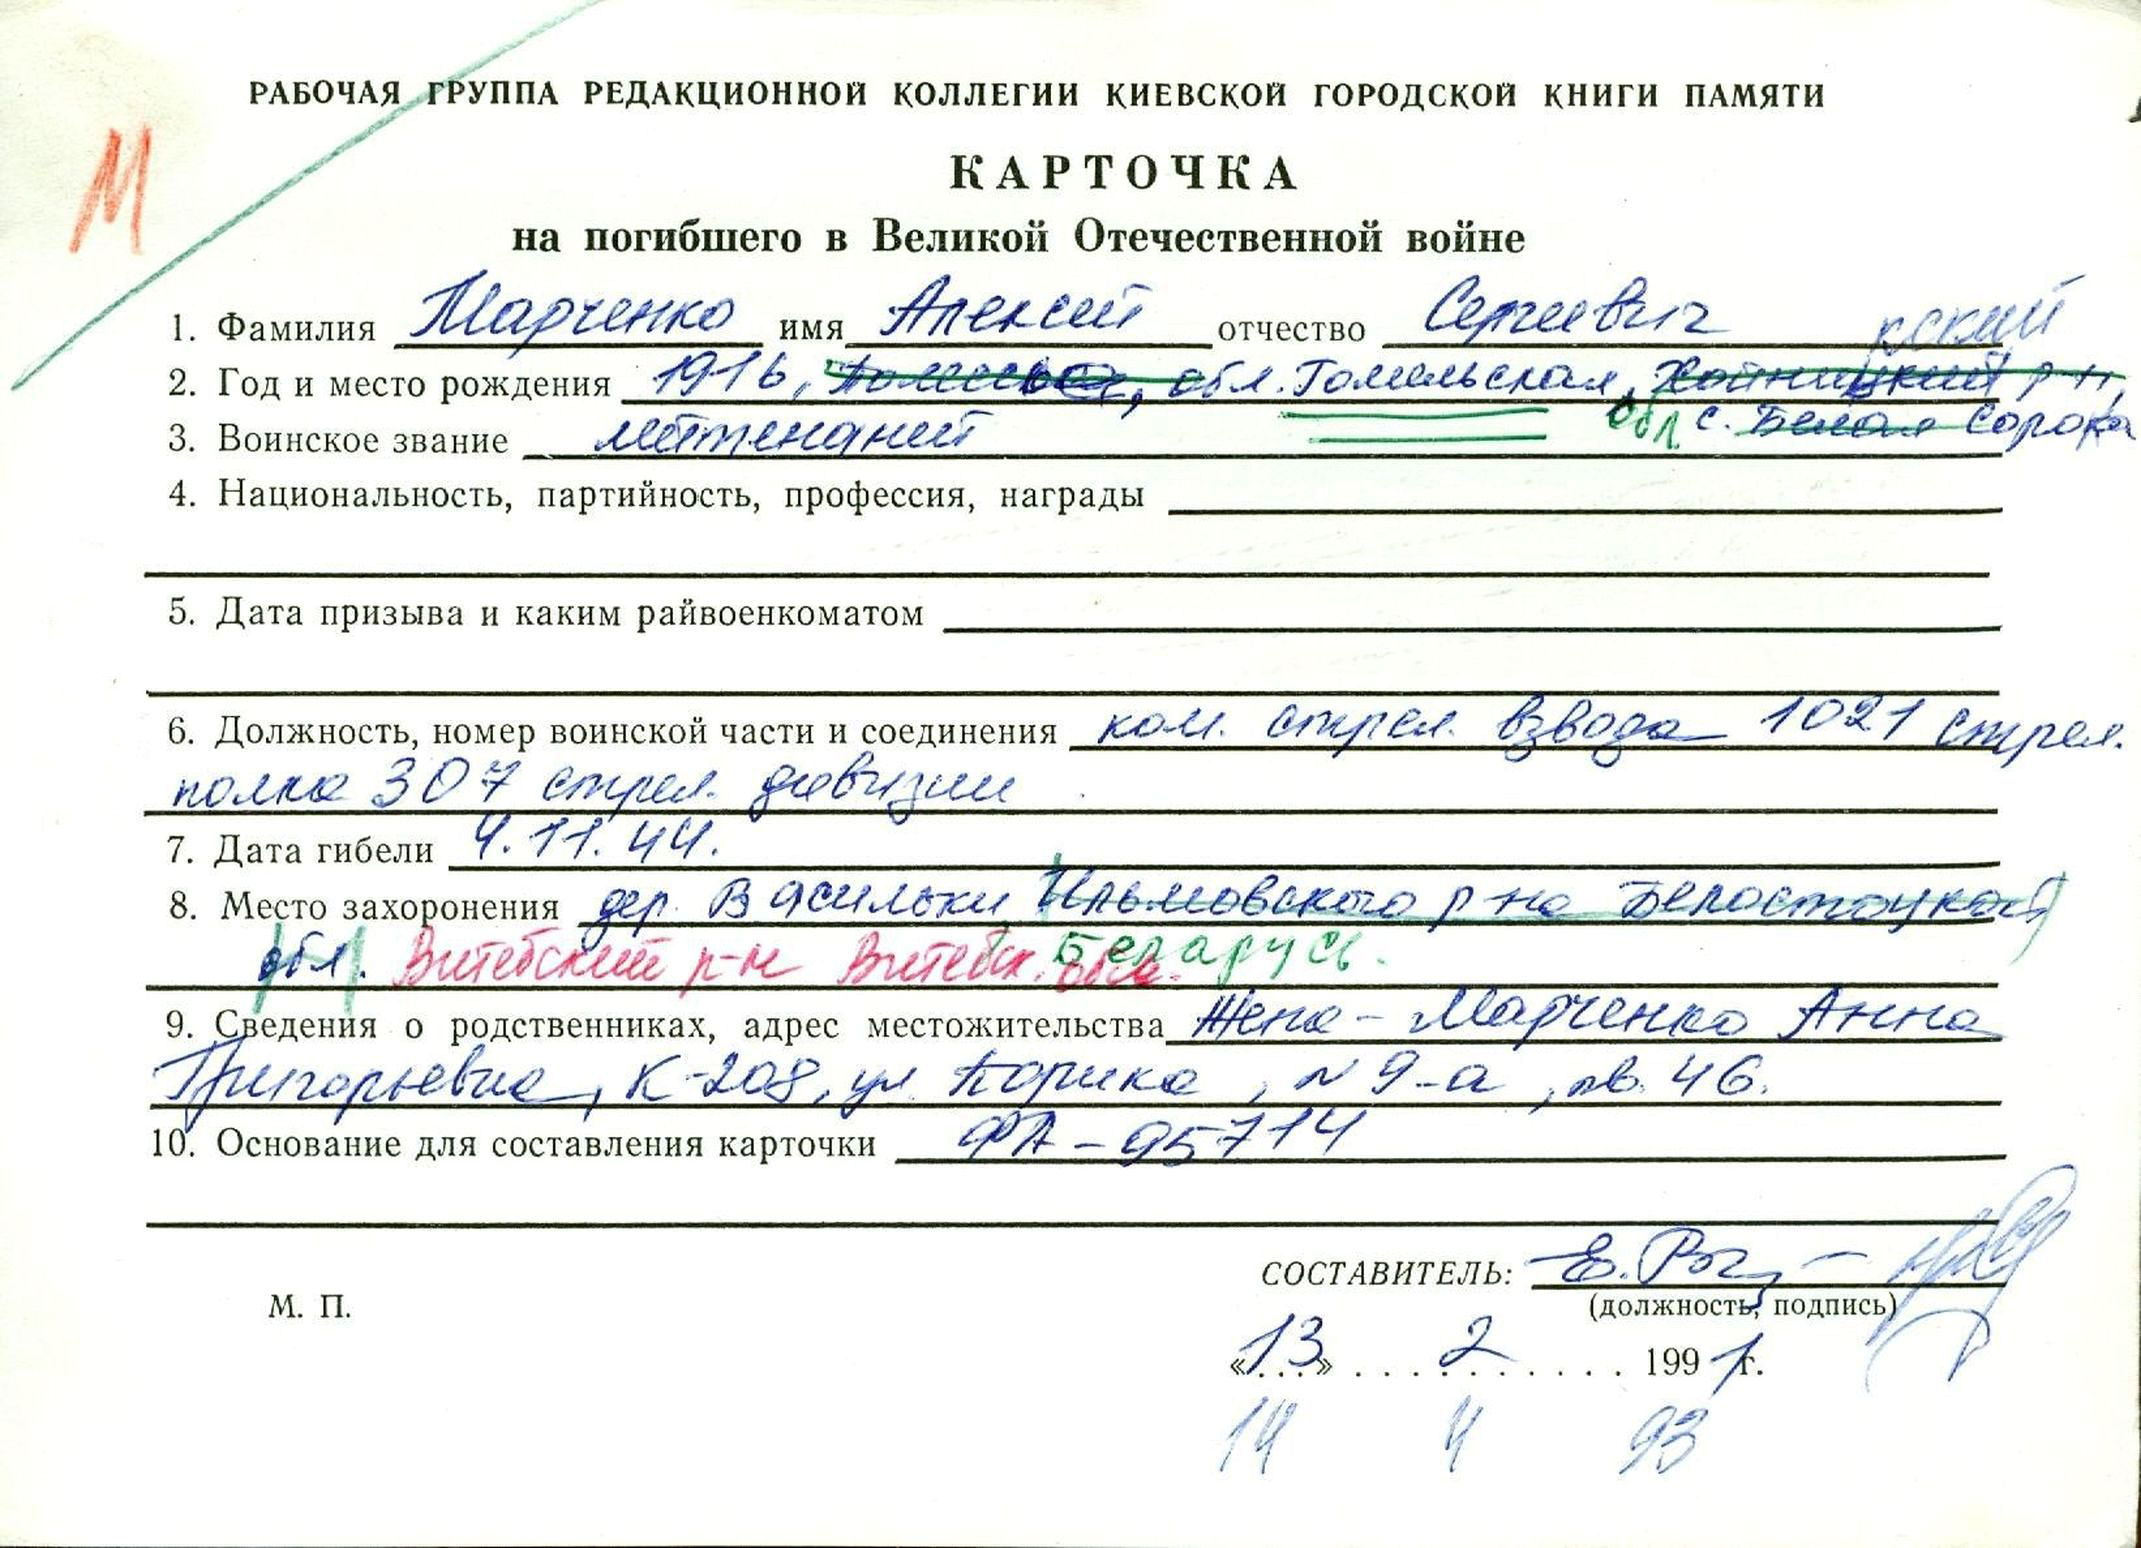 РАБОЧАЯ ГРУППА РЕДАКЦИОННОЙ КОЛЛЕГИИ КИЕВСКОЙ ГОРОДСКОЙ КНИГИ ПАМЯТИ
М
КАРТОЧКА
на погибшего в Великой Отечественной войне
1. Фамилия Марченко имя Алексей отчество Сергеевич
кский
2. Год и место рождения 1916, обл. Гомельская, Хойницкий р-н,
обл с. Белая Сорока
3. Воинское звание лейтенант
4. Национальность, партийность, профессия, награды
5. Дата призыва и каким райвоенкоматом
6. Должность, номер воинской части и соединения ком. стрел. взвода 1021 стрел.
полка 307 стрел. дивизии
7. Дата гибели 4.11.44.
8. Место захоронения дер. Васильки Белостоцкой р-на
обл. Витебский р-н Витебск. обл. Беларусь.
9. Сведения о родственниках, адрес местожительства Жена - Марченко Анна
Григорьевна, К-208, ул. N 9-а, кв. 46.
10. Основание для составления карточки ФА - 95714
СОСТАВИТЕЛЬ:
(должность, подпись)
М. П.
«13» 2 1991 г.
14 4 93